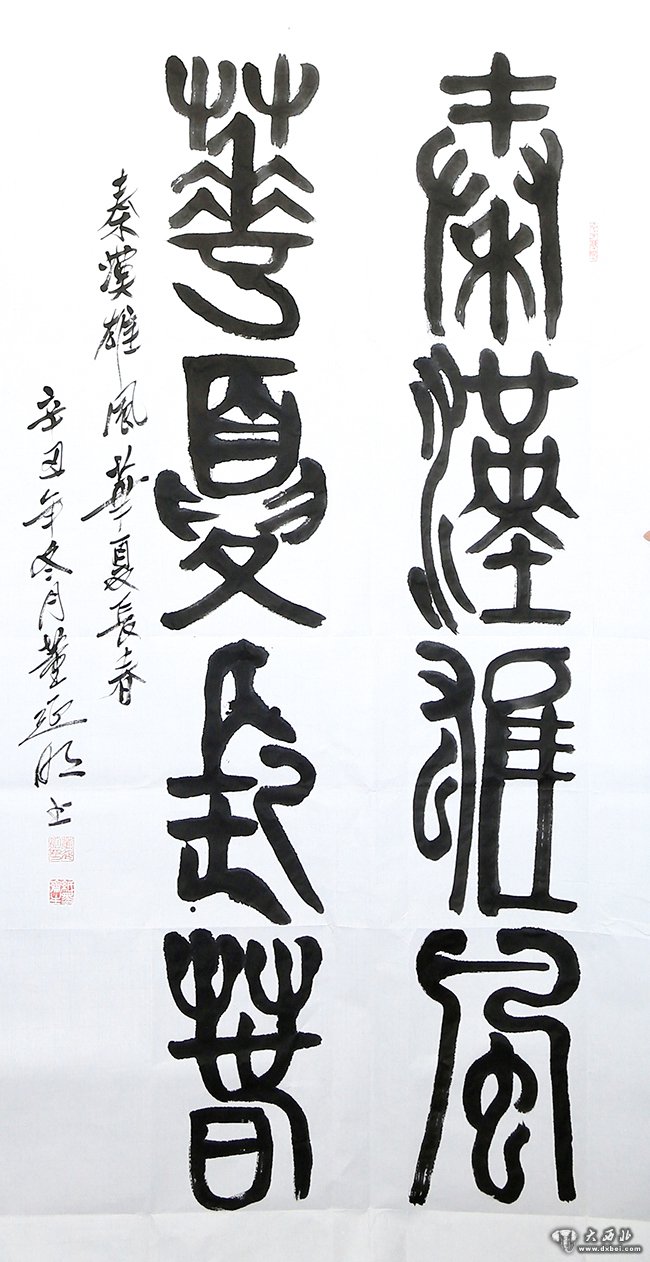 秦漢雄風
華夏長春
秦漢雄風華夏長春
辛丑年冬月董延明书
大西北
www.dxbei.com